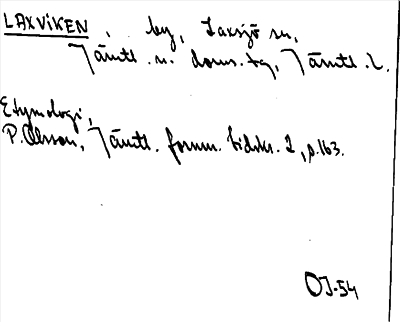 LAXVIKEN, by, Laxsjö sn,
Jämtl. n. doms.tg, Jämtl. l.
Etymologi,
P. Olsson, Jämtl. fornm. tidskr. 2, p. 163.
OJ-54